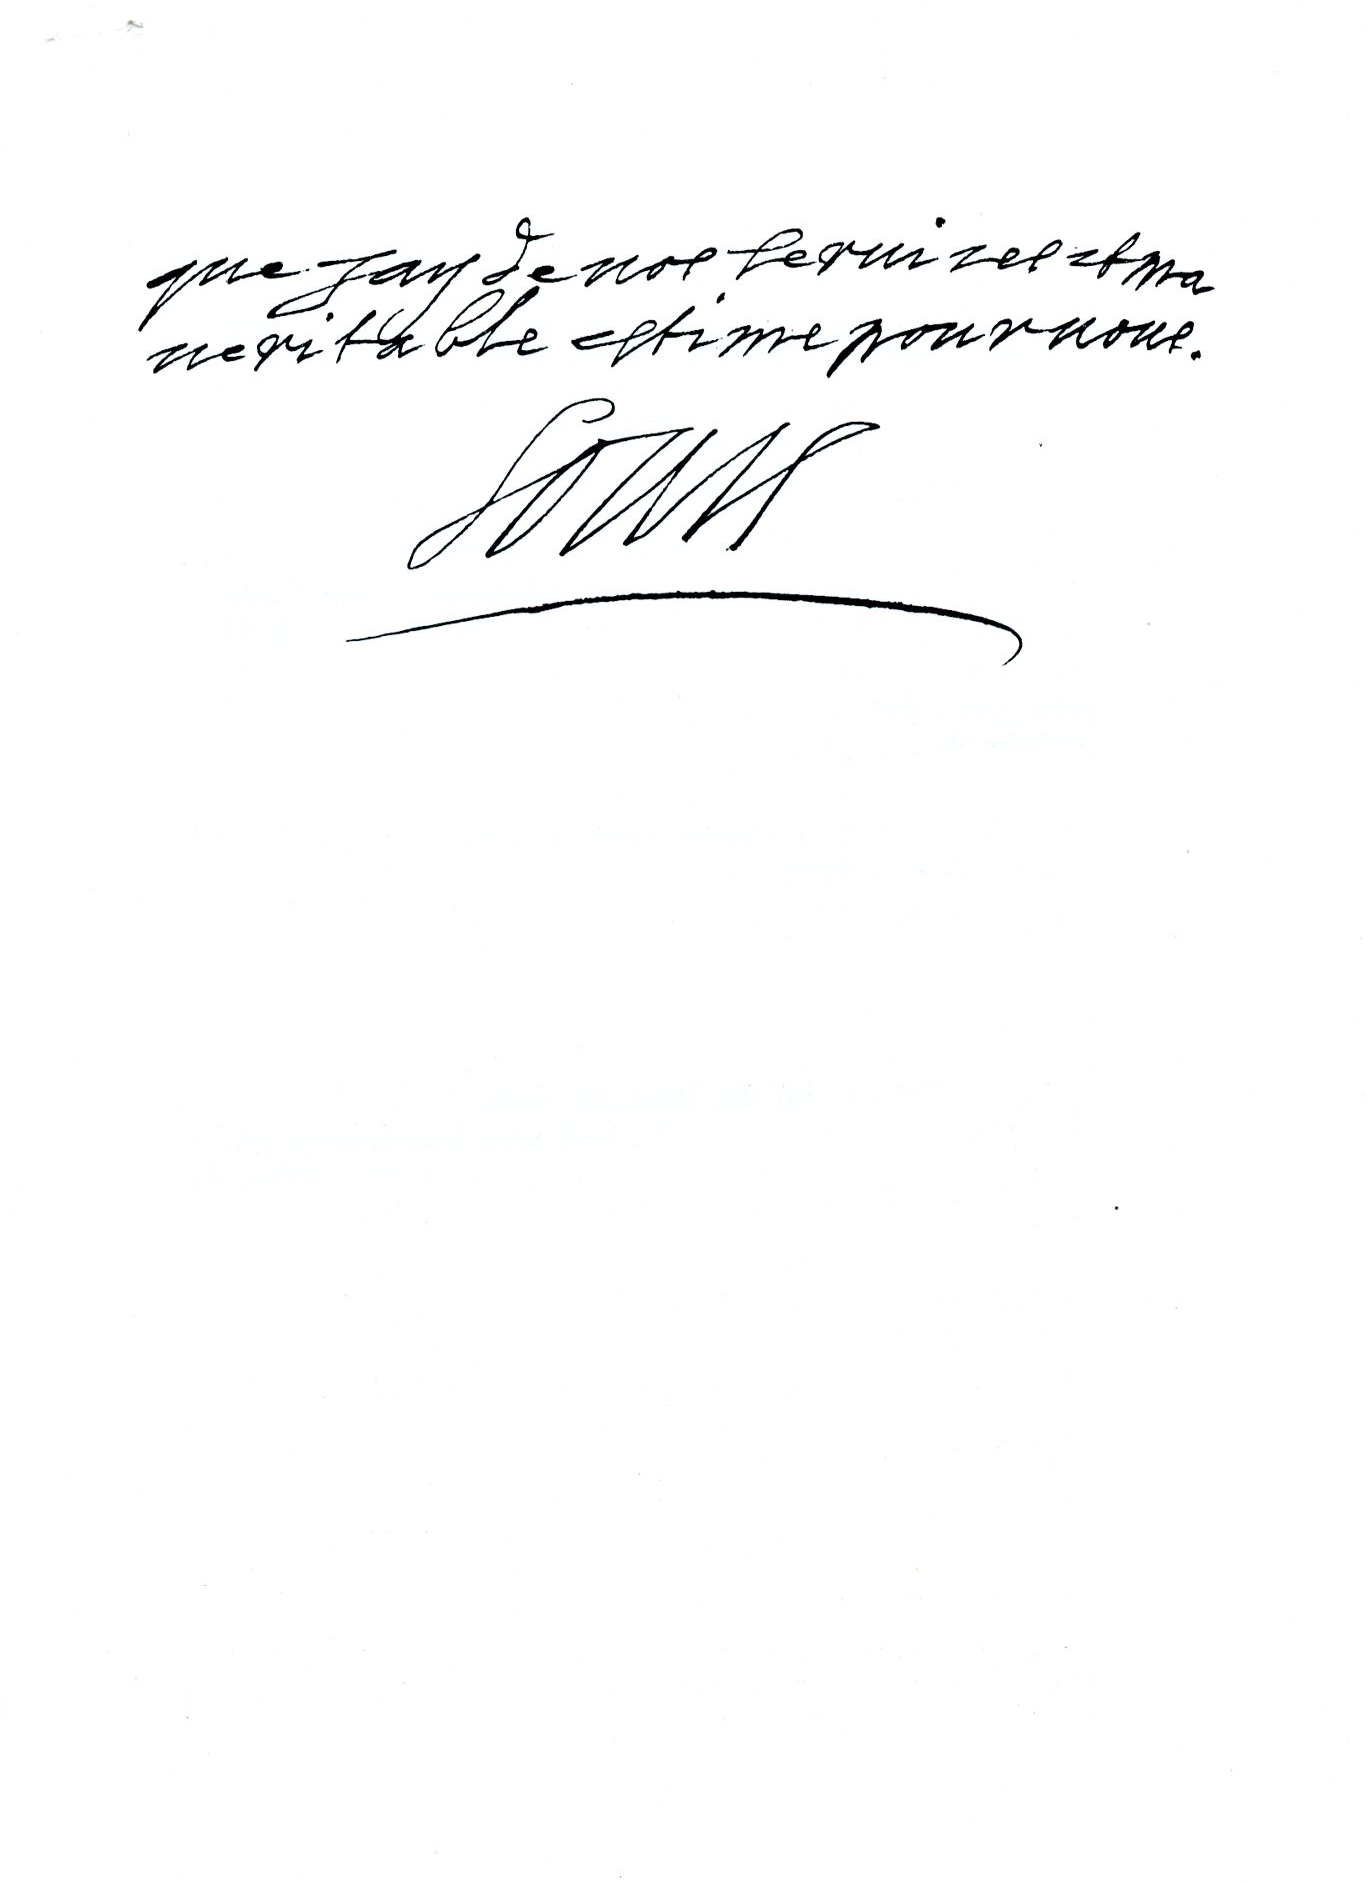 que jay de uos seruices et ma
ueritable estime pour uous.
Louis